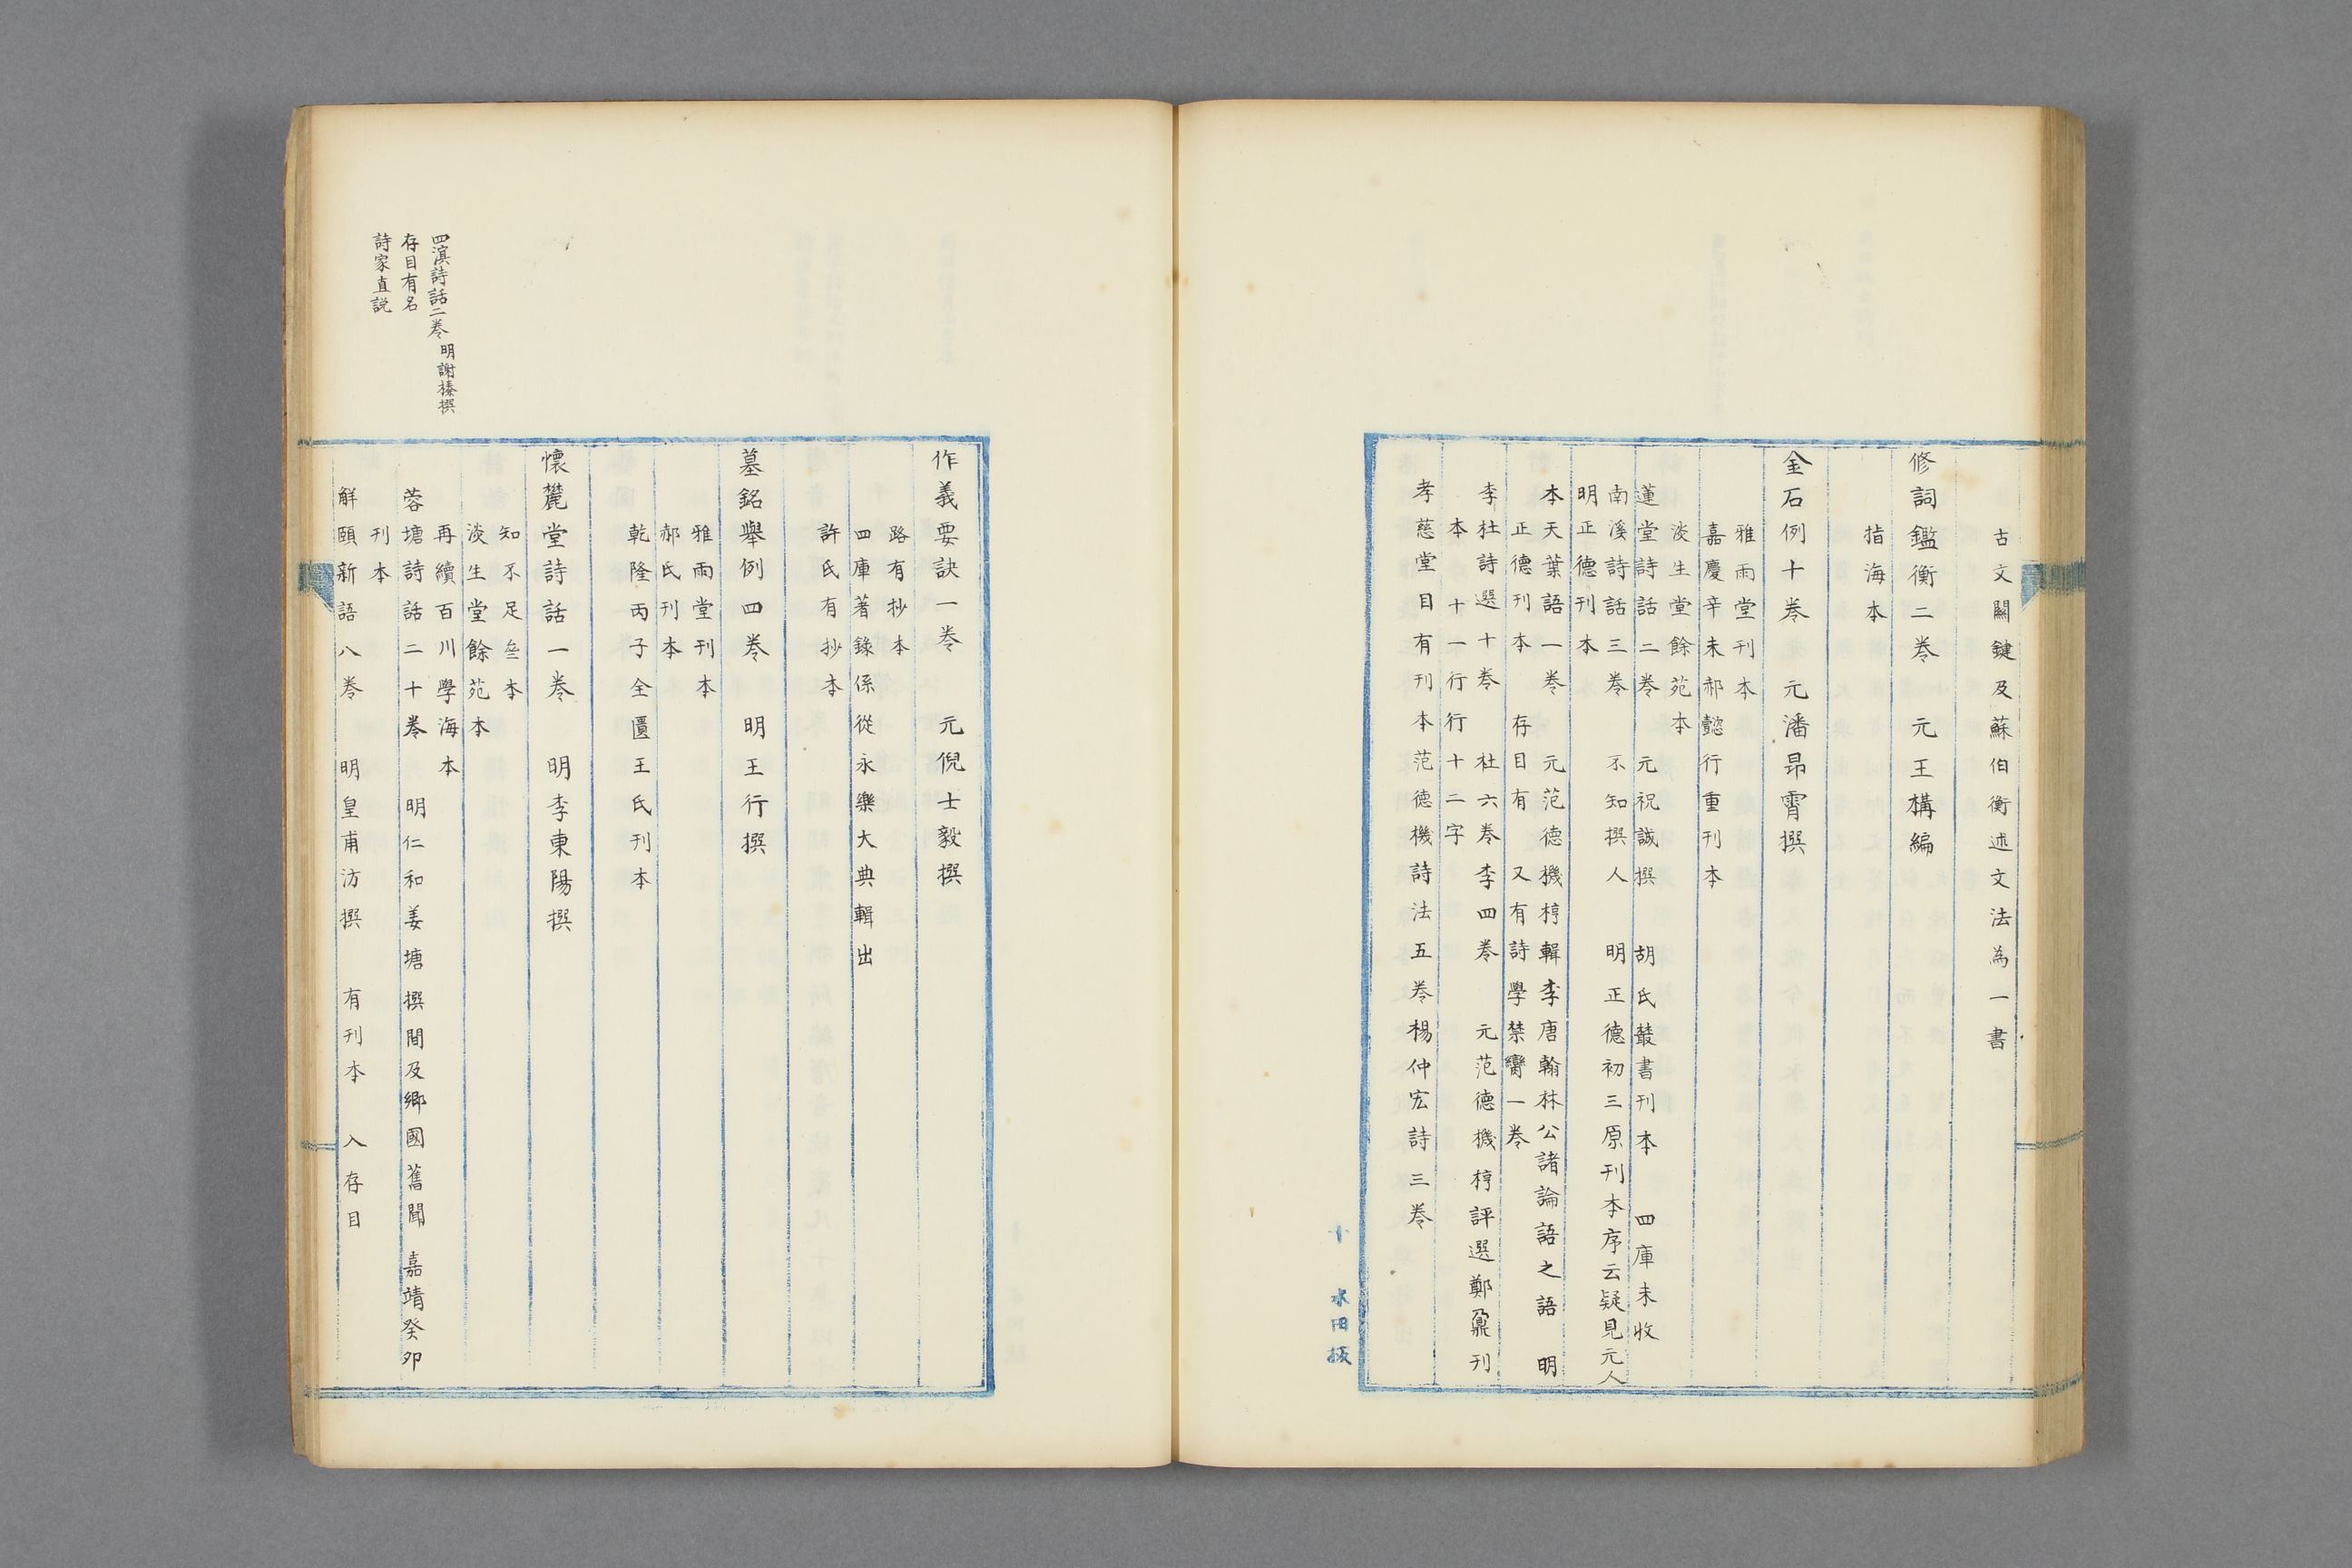 古文關鍵及蘇伯衡述文法為一書
修詞鑑衡二卷　元王構編
指海本
金石例十卷　元潘昂霄撰
雅雨堂刊本
嘉慶辛未郝懿行重刊本
淡生堂餘苑本
蓮堂詩話二卷　元祝誠撰　胡氏叢書刊本　四庫未收
南溪詩話三卷　不知撰人　明正德初三原刊本序云疑見元人
明正德刊本
木天葉語一卷　元范德機梈輯李唐翰林公諸論語之語　明
正德刊本　存目有　又有詩學禁臠一卷
李杜詩選十卷　杜六卷李四卷　元范德機梈評選鄭鼐刊
本　十一行行十二字
孝慈堂目有刊本范德機詩法五卷楊仲宏詩三卷
十　水田抜
作義要訣一卷　元倪士毅撰
路有抄本
四庫著錄係從永樂大典輯出
許氏有抄本
墓銘舉例四卷　明王行撰
雅雨堂刊本
郝氏刊本
乾隆丙子全匱王氏刊本
懷麓堂詩話一卷　明李東陽撰
知不足叁本
淡生堂餘苑本
再續百川學海本
蓉塘詩話二十卷　明仁和姜塘撰間及鄉國舊聞　嘉靖癸卯
刊本
解頤新語八卷　明皇甫汸撰　有刊本　入存目
四溟詩話二卷　明謝榛撰
存目有名
詩家直説